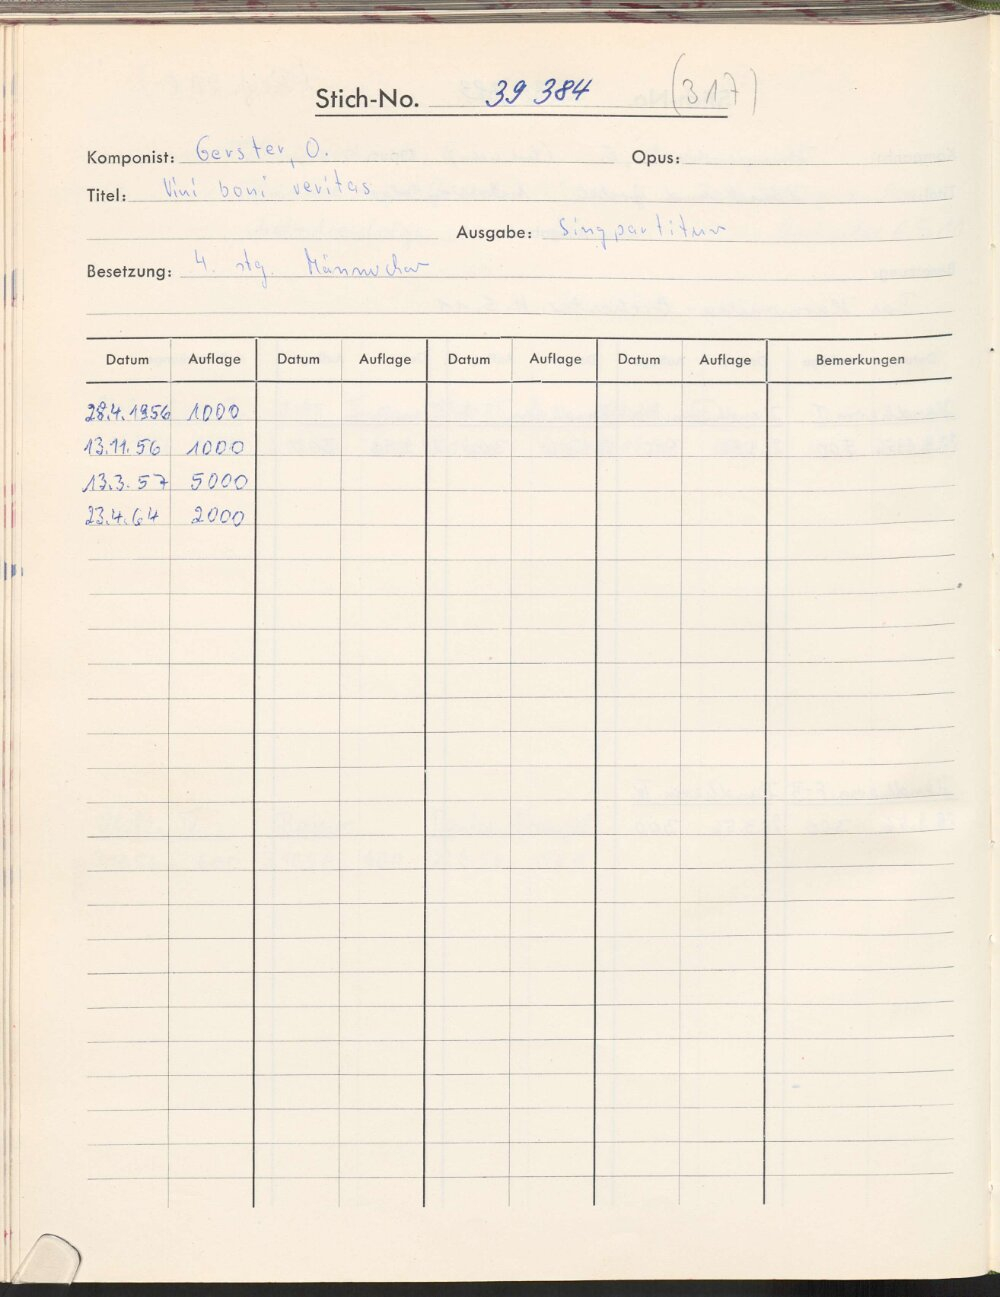 Stich-No. 39 384 (317)
Komponist: Gerster, O. Opus:
Titel: Vini boni veritas
Ausgabe: Singpartitur
Besetzung: 4. stg. Männerchor
Datum Auflage Datum Auflage Datum Auflage Datum Auflage Bemerkungen
28.4.1956 1000
13.11.56 1000
13.3.57 5000
23.4.64 2000